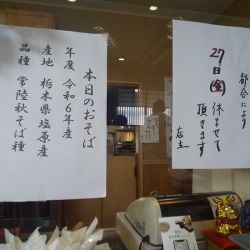 本日のおそば
年度 令和6年産
産地 栃木県塩原産
品種 常陸秋そば種
都合により
27日(金)休ませて
頂きます
店主